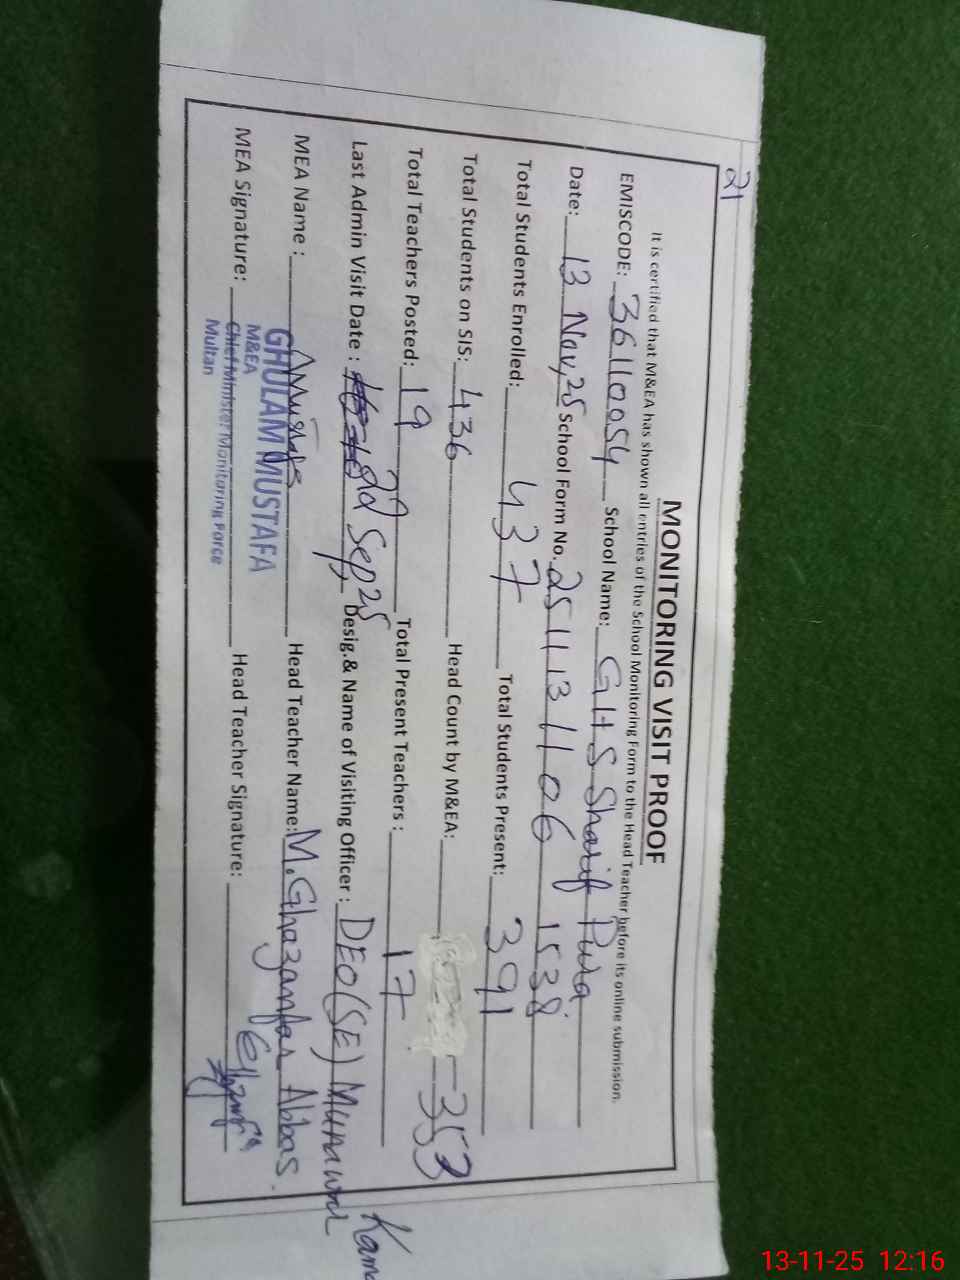 21
MONITORING VISIT PROOF
It is certified that M&EA has shown all entries of the School Monitoring Form to the Head Teacher before its online submission.
EMISCODE: 36110054 School Name: GHS Sharif Pura
Date: 13 Nov,25 School Form No. 2511131106 1538
Total Students Enrolled: 437 Total Students Present: 391
Total Students on SIS: 436 Head Count by M&EA: 353
Total Teachers Posted: 19 Total Present Teachers: 17
Last Admin Visit Date: 22 Sep 25 Desig.& Name of Visiting Officer: DEO(SE) Munawar Kama
MEA Name: Head Teacher Name: M.Ghazanfar Abbas.
GHULAM MUSTAFA
MEA Signature: Head Teacher Signature:
M&EA
Chief Minister Monitoring Force
Multan
13-11-25 12:16